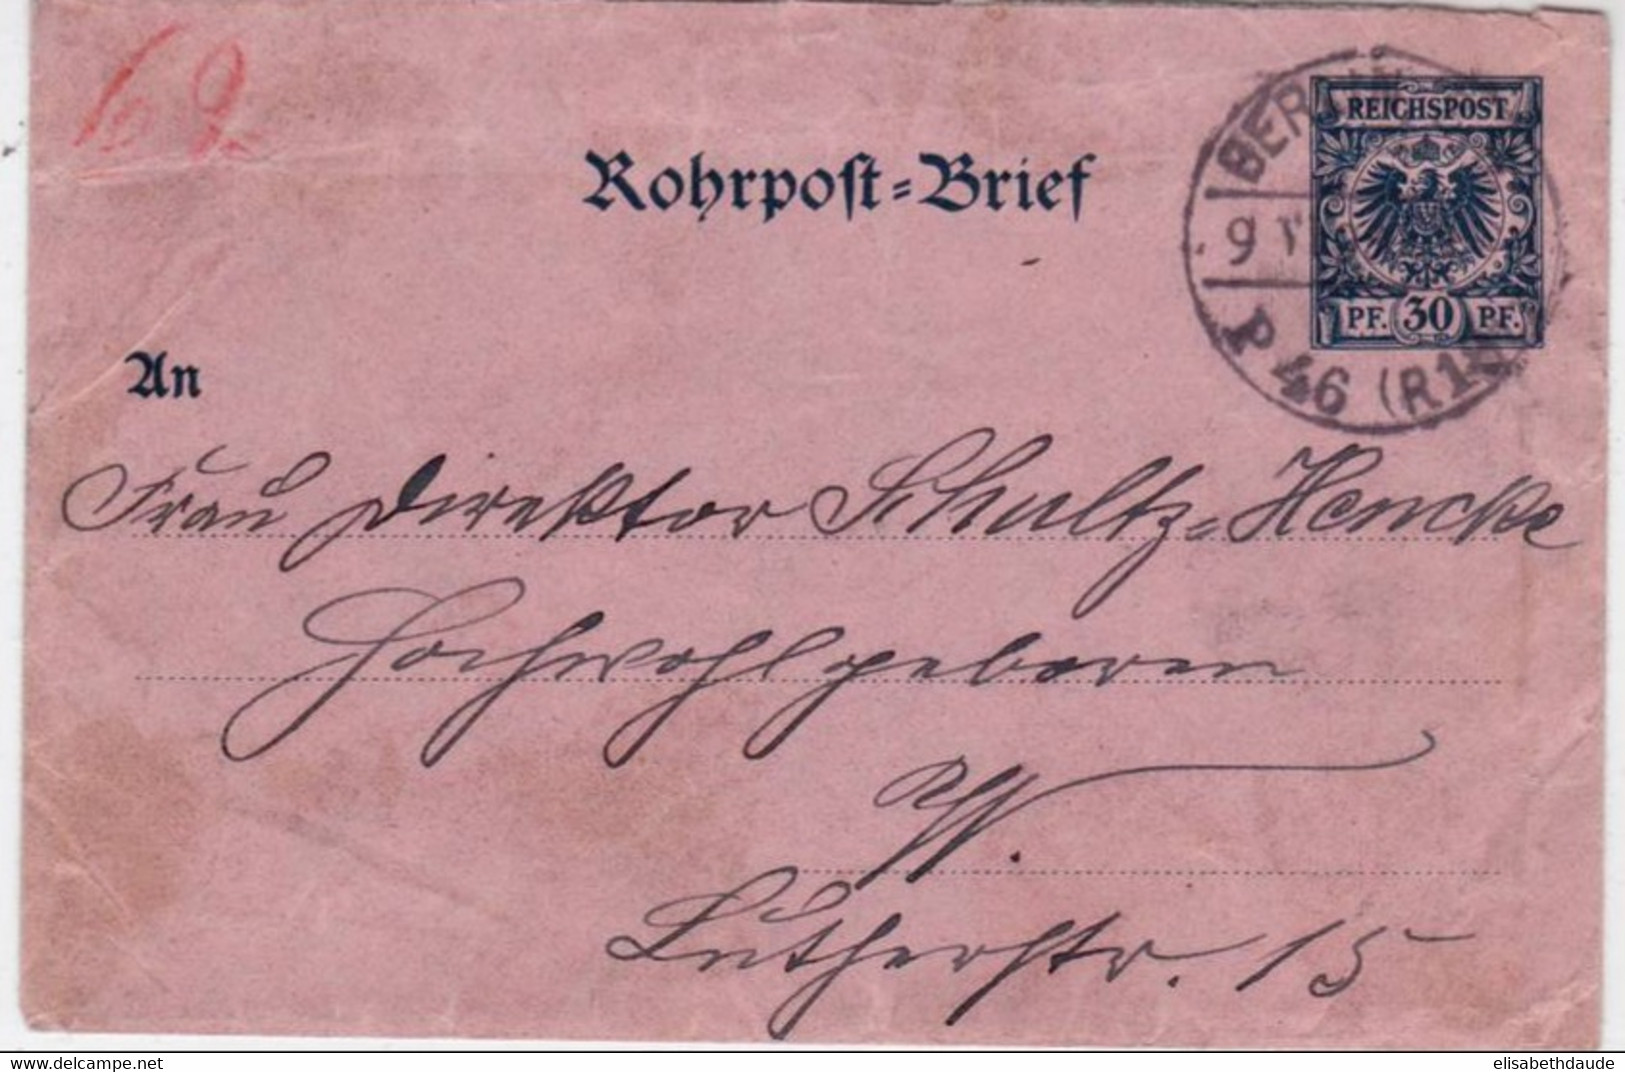 69
Rohrpost=Brief
REICHSPOST
PF. 30 PF.
BERLIN
9
P 46 (R1
An
Frau Direktor Schultz=Hencke
Hochwohlgeboren
W.
Lutherstr. 15
elisabethdaude